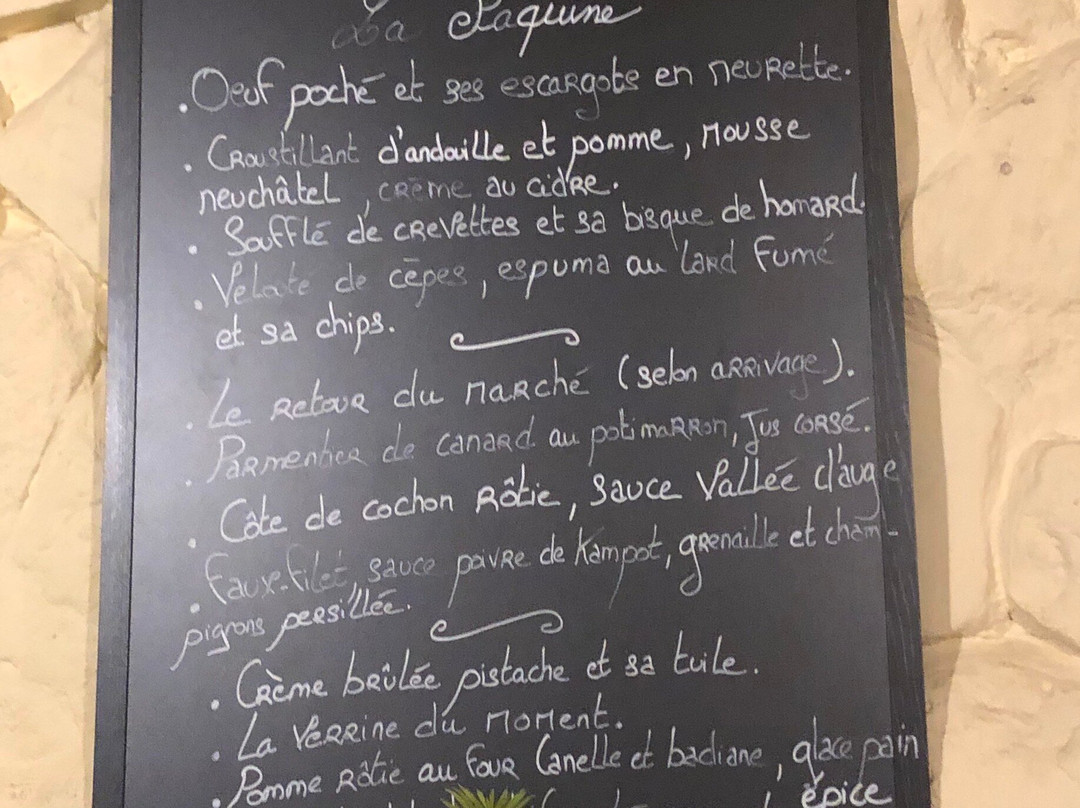 La Paquine
. Oeuf poché et ses escargots en neurette.
. Croustillant d'andouille et pomme, mousse
neuchâtel, crème au cidre.
. Soufflé de crevettes et sa bisque de homard.
. Velouté de cèpes, espuma au lard fumé
et sa chips.
. Le retour du marché (selon arrivage).
. Parmentier de canard au potimarron, Jus corsé.
. Côte de cochon rôtie, sauce Vallée d'auge
. Faux-filet, sauce poivre de Kampot, grenaille et cham-
pignons persillée.
. Crème brûlée pistache et sa tuile.
. La Verrine du moment.
. Pomme rôtie au four Canelle et badiane, glace pain
épice